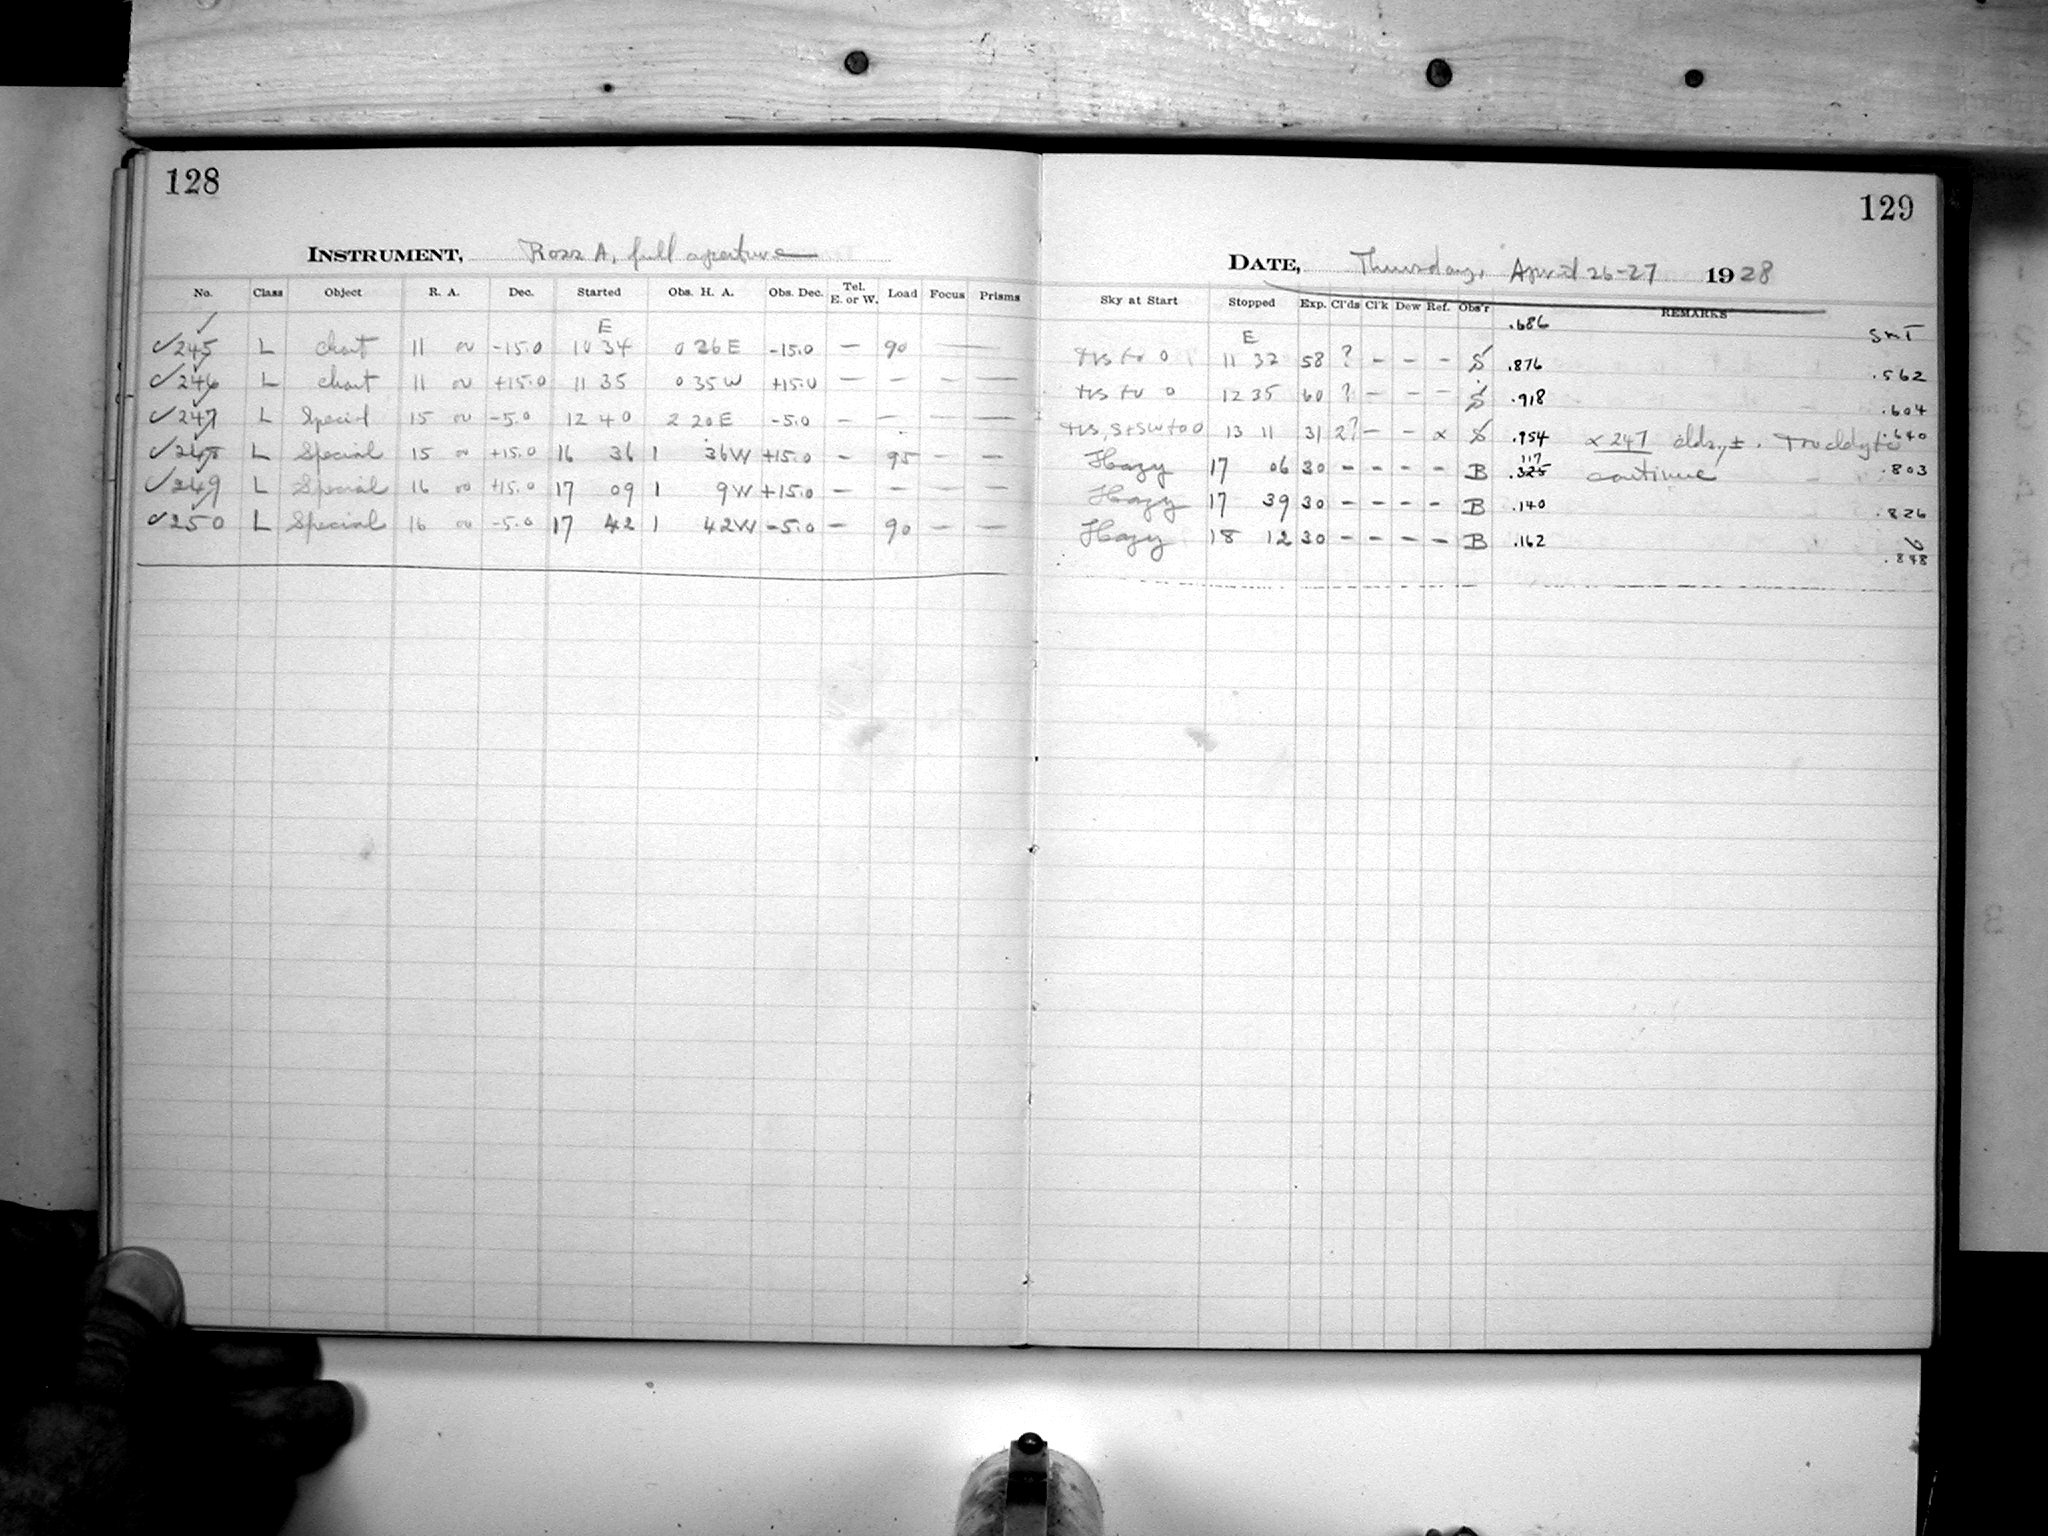 128
INSTRUMENT, Ross A, full aperture
No. Class Object R. A. Dec. Started Obs. H. A. Obs. Dec. Tel. E. or W. Load Focus Prisms
E
245 L chart 11 00 -15.0 10 34 0 26 E -15.0 — 90 —
246 L chart 11 00 +15.0 11 35 0 35 W +15.0 — — — —
247 L Special 15 00 -5.0 12 40 2 20 E -5.0 — — — —
248 L Special 15 00 +15.0 16 36 1 36 W +15.0 — 95 — —
249 L Special 16 00 +15.0 17 09 1 9 W +15.0 — — — —
250 L Special 16 00 -5.0 17 42 1 42 W -5.0 — 90 — —
129
DATE, Thursday, April 26-27 1928
Sky at Start Stopped Exp. Cl'ds Cl'k Dew Ref. Obs'r REMARKS
E .686 SMT
0 11 32 58 ? — — — S .876 .562
0 12 35 60 ? — — — S .918 .604
13 11 31 2? — — x S .954 x 247 clds, ±. Too cldy to .640
Hazy 17 06 30 — — — — B .117 .325 continue .803
Hazy 17 39 30 — — — — B .140 .826
Hazy 18 12 30 — — — — B .162 .848